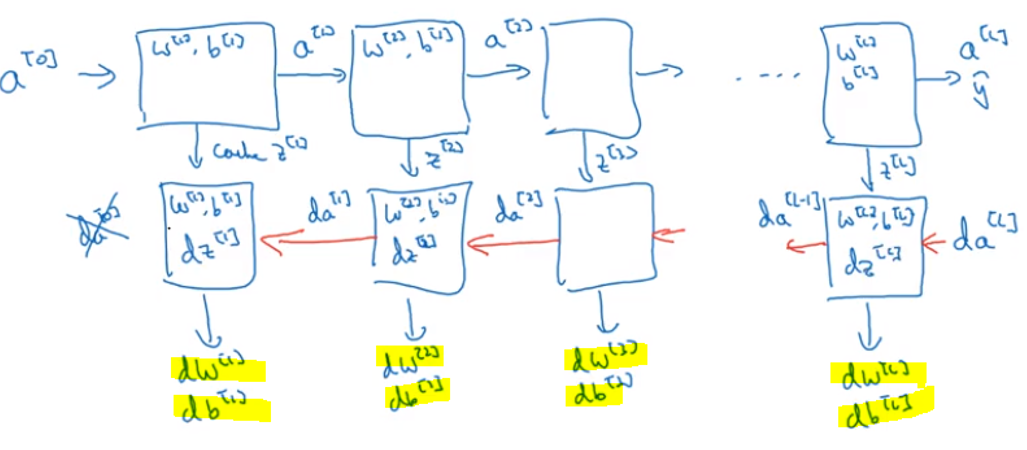 a^[0]
w^[1], b^[1]
a^[1]
w^[2], b^[1]
a^[2]
....
w^[L]
b^[L]
a^[L]
ŷ
cache z^[1]
z^[2]
z^[3]
z^[L]
da^[0]
w^[1], b^[1]
dz^[1]
da^[1]
w^[2], b^[2]
dz^[2]
da^[2]
da^[L-1]
w^[L], b^[L]
dz^[L]
da^[L]
dw^[1]
db^[1]
dw^[2]
db^[2]
dw^[3]
db^[3]
dw^[L]
db^[L]